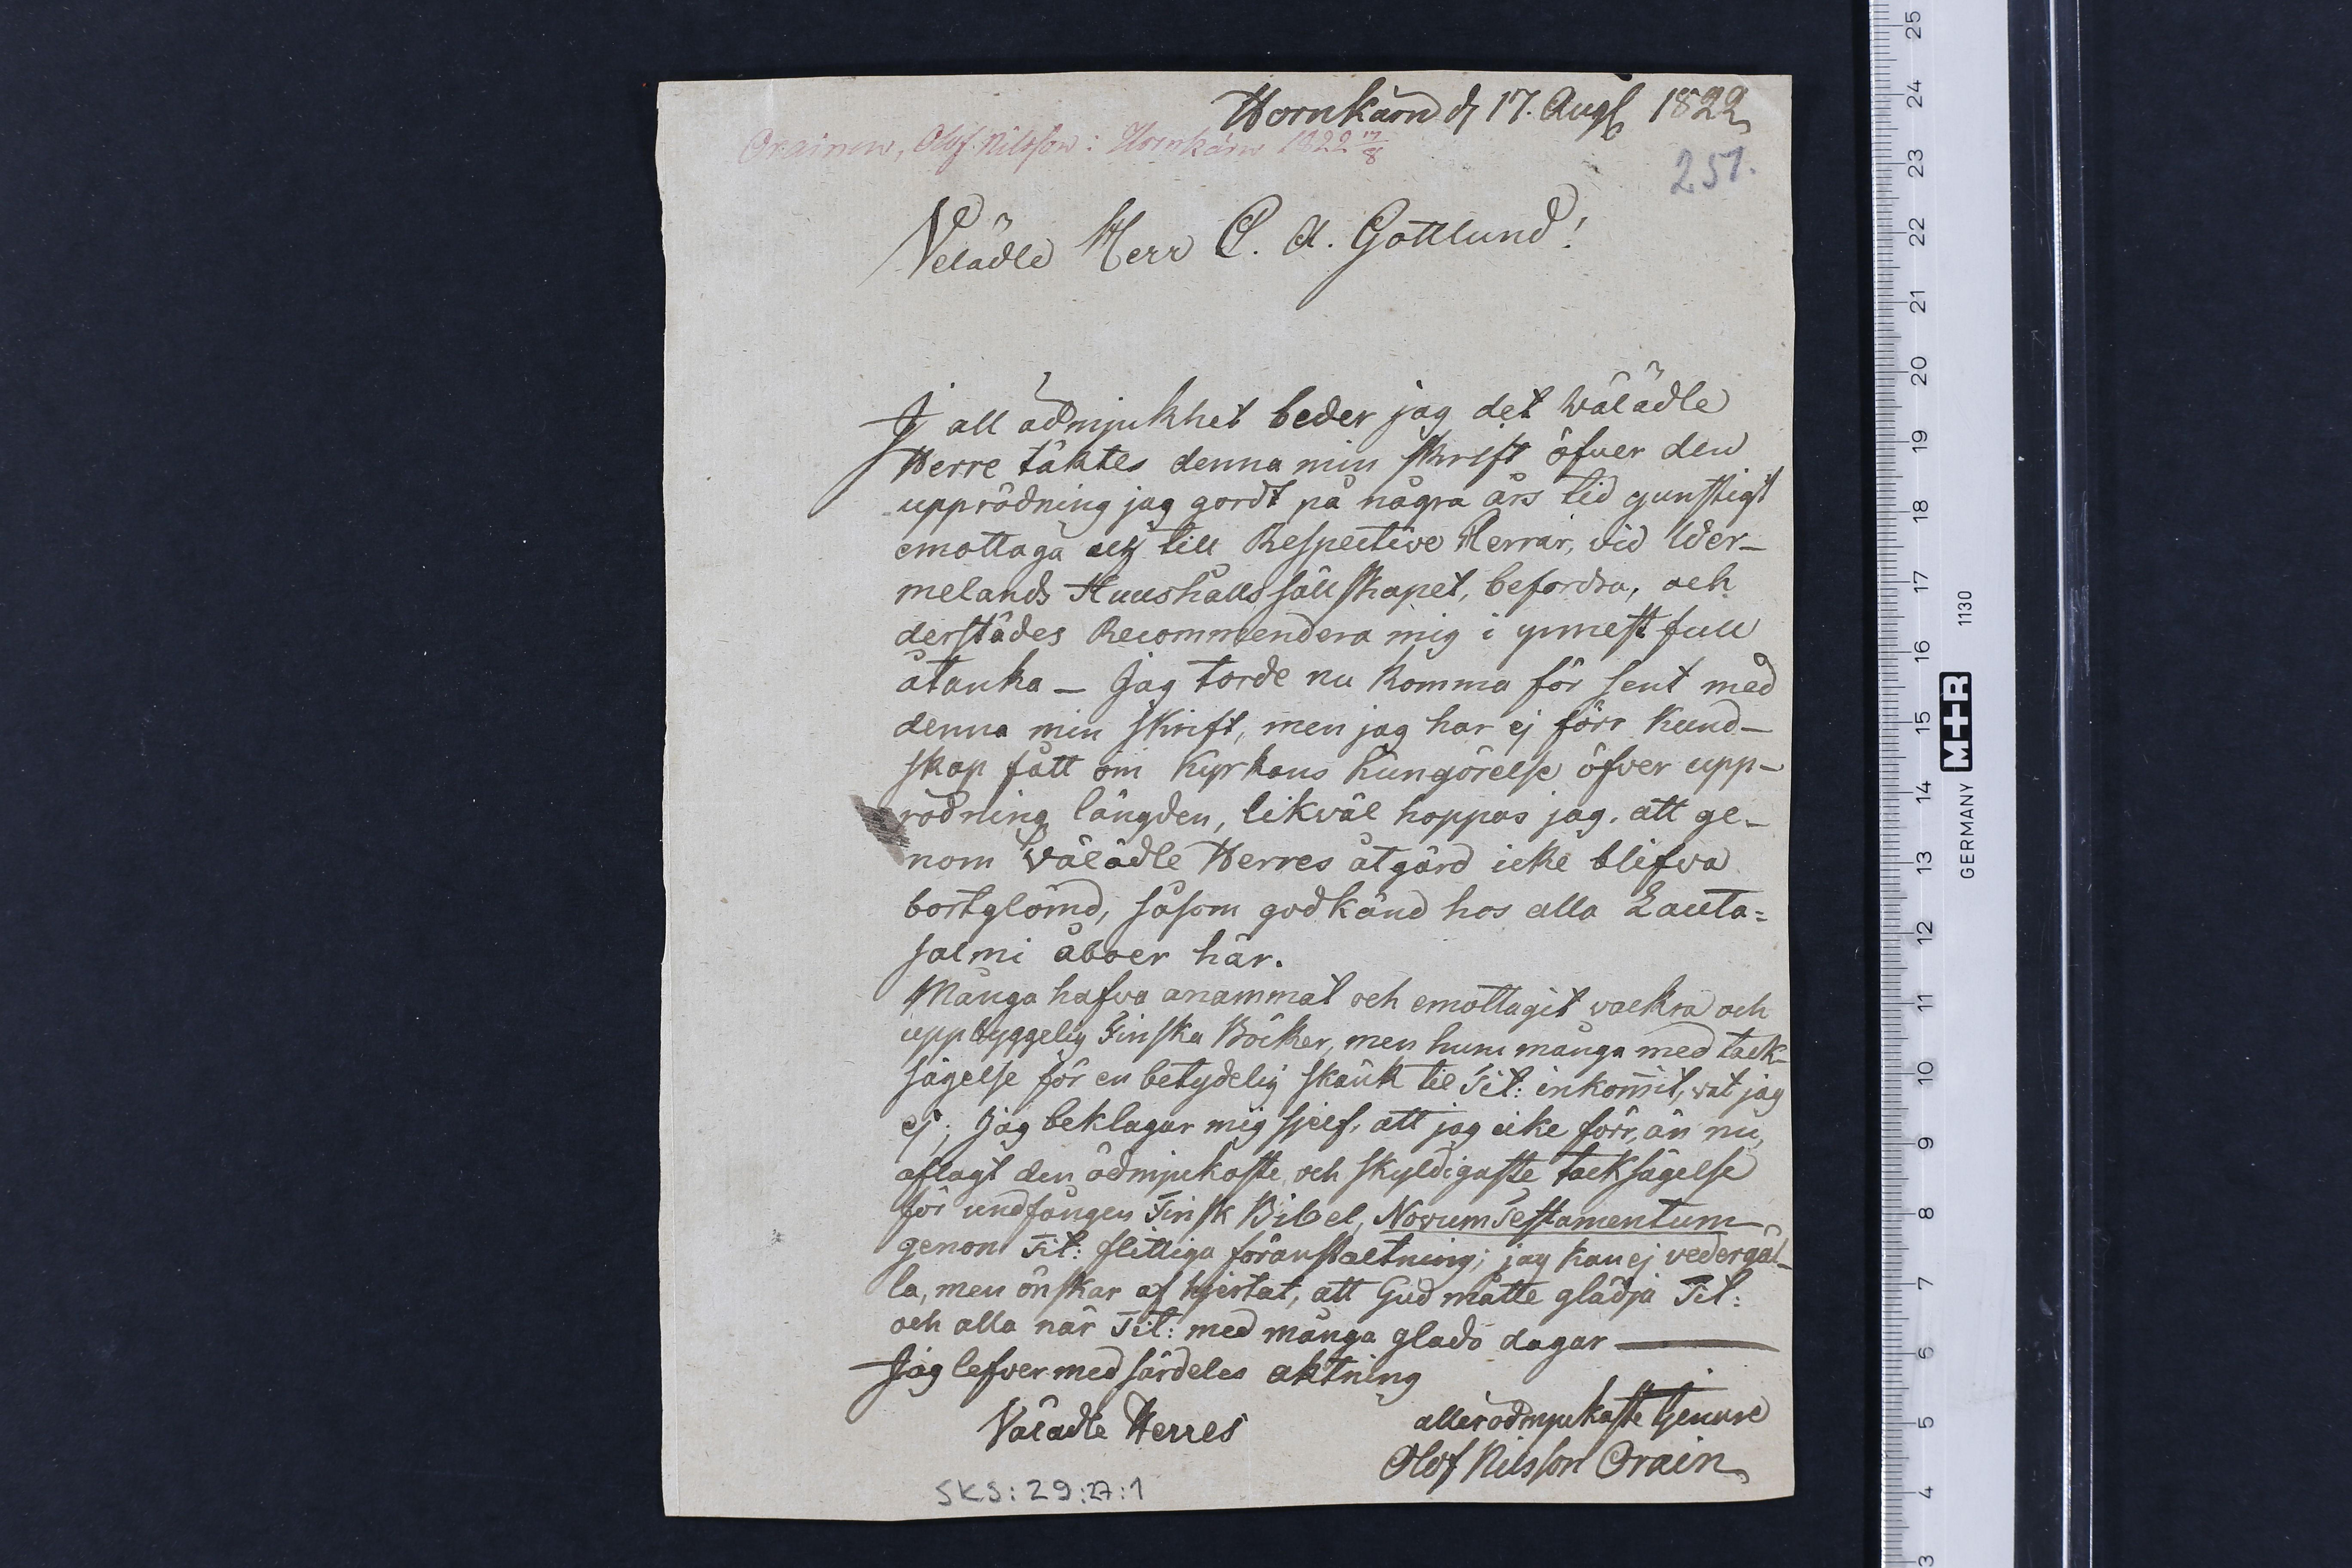 Hornkärn d 17. Augs 1822
Orainen, Olof Nilsson: Hornkärn 1822 17/8
251.
Velädle Herr C. A. Gottlund!
J all ödmjukhet beder jag det Välädle
Herre täktes denna min skrift öfver den
upprödning jag gordt på några års tid gunstigt
emottaga till Respective Herrar, vid Wer-
melands Huushålls sällskapet, befordra, och
derstädes Recommendera mig i ynnest full
åtanka — Jag torde nu komma för sent med
denna min skrift, men jag har ej förr Kund-
skap fått om Kyrkans Kungörelse öfver upp-
rödning längden, likväl hoppas jag. att ge-
nom Välädle Herres åtgärd icke blifva
bortglömd, såsom godkänd hos alla Lauta=
salmi åboer här.
Många hafva anammat och emottagit vackra och
uppbyggelig Finska Böcker, men huru många med tack-
sägelse för en betydelig skänk til Tit: inkommit, vet jag
ej; Jag beklagar mig sjelf, att jag icke förr, än nu,
aflagt den ödmjukaste, och skyldigaste tacksägelse
för undfången Finsk Bibel, Novum Testamentum
genom Tit: flittiga föranstaltning; jag kan ej vedergäl-
la, men önskar af hjertat, att Gud måtte glädja Tit:
och alla när Tit: med många glada dagar —
Jag lefver med särdeles aktning
Välädle Herres
allerödmjukaste tjenare
Olof Nilsson Orain
SKS: 29:27:1
25
24
23
22
21
20
19
18
17
16
15
14
13
12
11
10
9
8
7
6
5
4
3
GERMANY M+R 1130